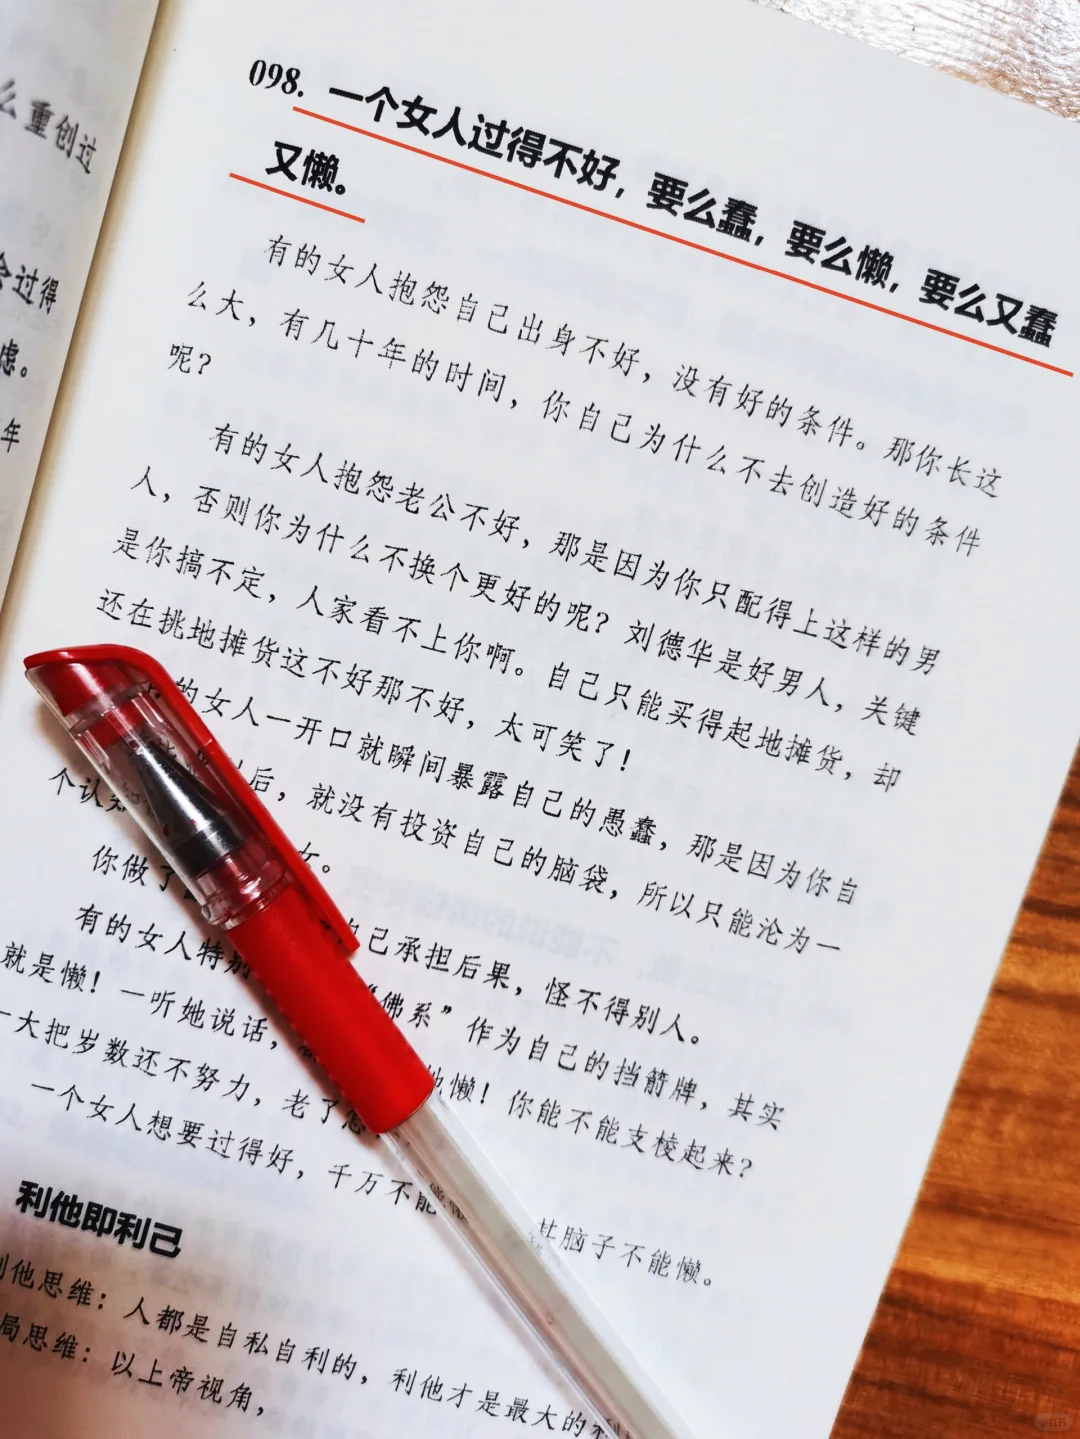 么重创过
会过得
虑。
年
098. 一个女人过得不好，要么蠢，要么懒，要么又蠢
又懒。
有的女人抱怨自己出身不好，没有好的条件。那你长这
么大，有几十年的时间，你自己为什么不去创造好的条件
呢？
有的女人抱怨老公不好，那是因为你只配得上这样的男
人，否则你为什么不换个更好的呢？刘德华是好男人，关键
是你搞不定，人家看不上你啊。自己只能买得起地摊货，却
还在挑地摊货这不好那不好，太可笑了！
的女人一开口就瞬间暴露自己的愚蠢，那是因为你自
后，就没有投资自己的脑袋，所以只能沦为一
个认知
你做了 自己承担后果，怪不得别人。
有的女人特别 “佛系”作为自己的挡箭牌，其实
就是懒！一听她说话， 懒！你能不能支棱起来？
一大把岁数还不努力，老了怎
一个女人想要过得好，千万不能 其脑子不能懒。
利他即利己
利他思维：人都是自私自利的，利他才是最大的利
局思维：以上帝视角，